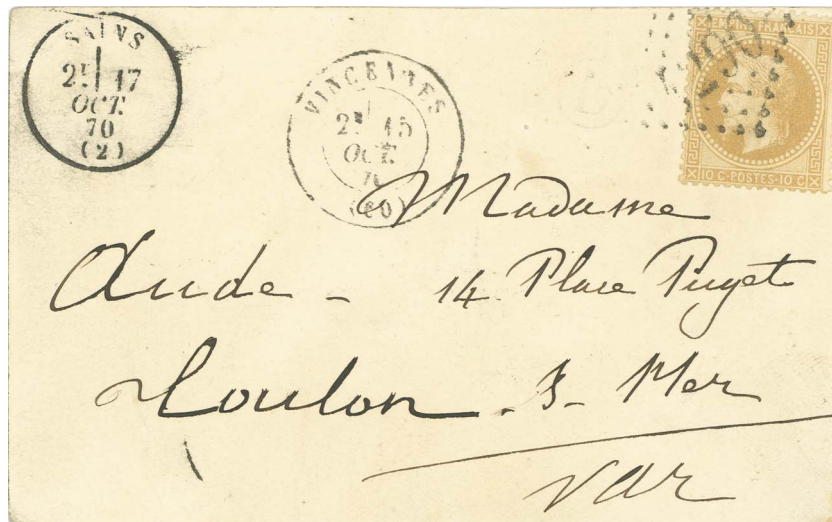 SAINS
2E 17
OCT.
70
(2)
VINCENNES
2E 15
OCT.
70
(60)
EMPIRE FRANÇAIS
10 C-POSTES-10 C
Madame
Aude - 14 Place Puget
Toulon-s-Mer
Var